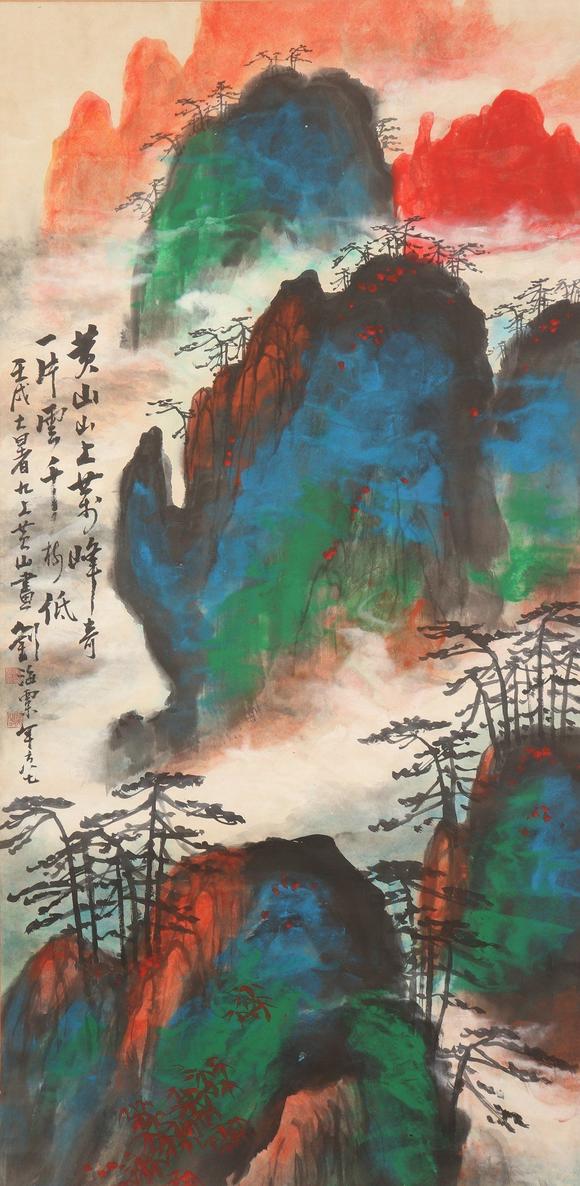 黄山山上萬峰奇
一片雲千樹低
壬戌大暑九上黄山畫
劉海粟年方八七